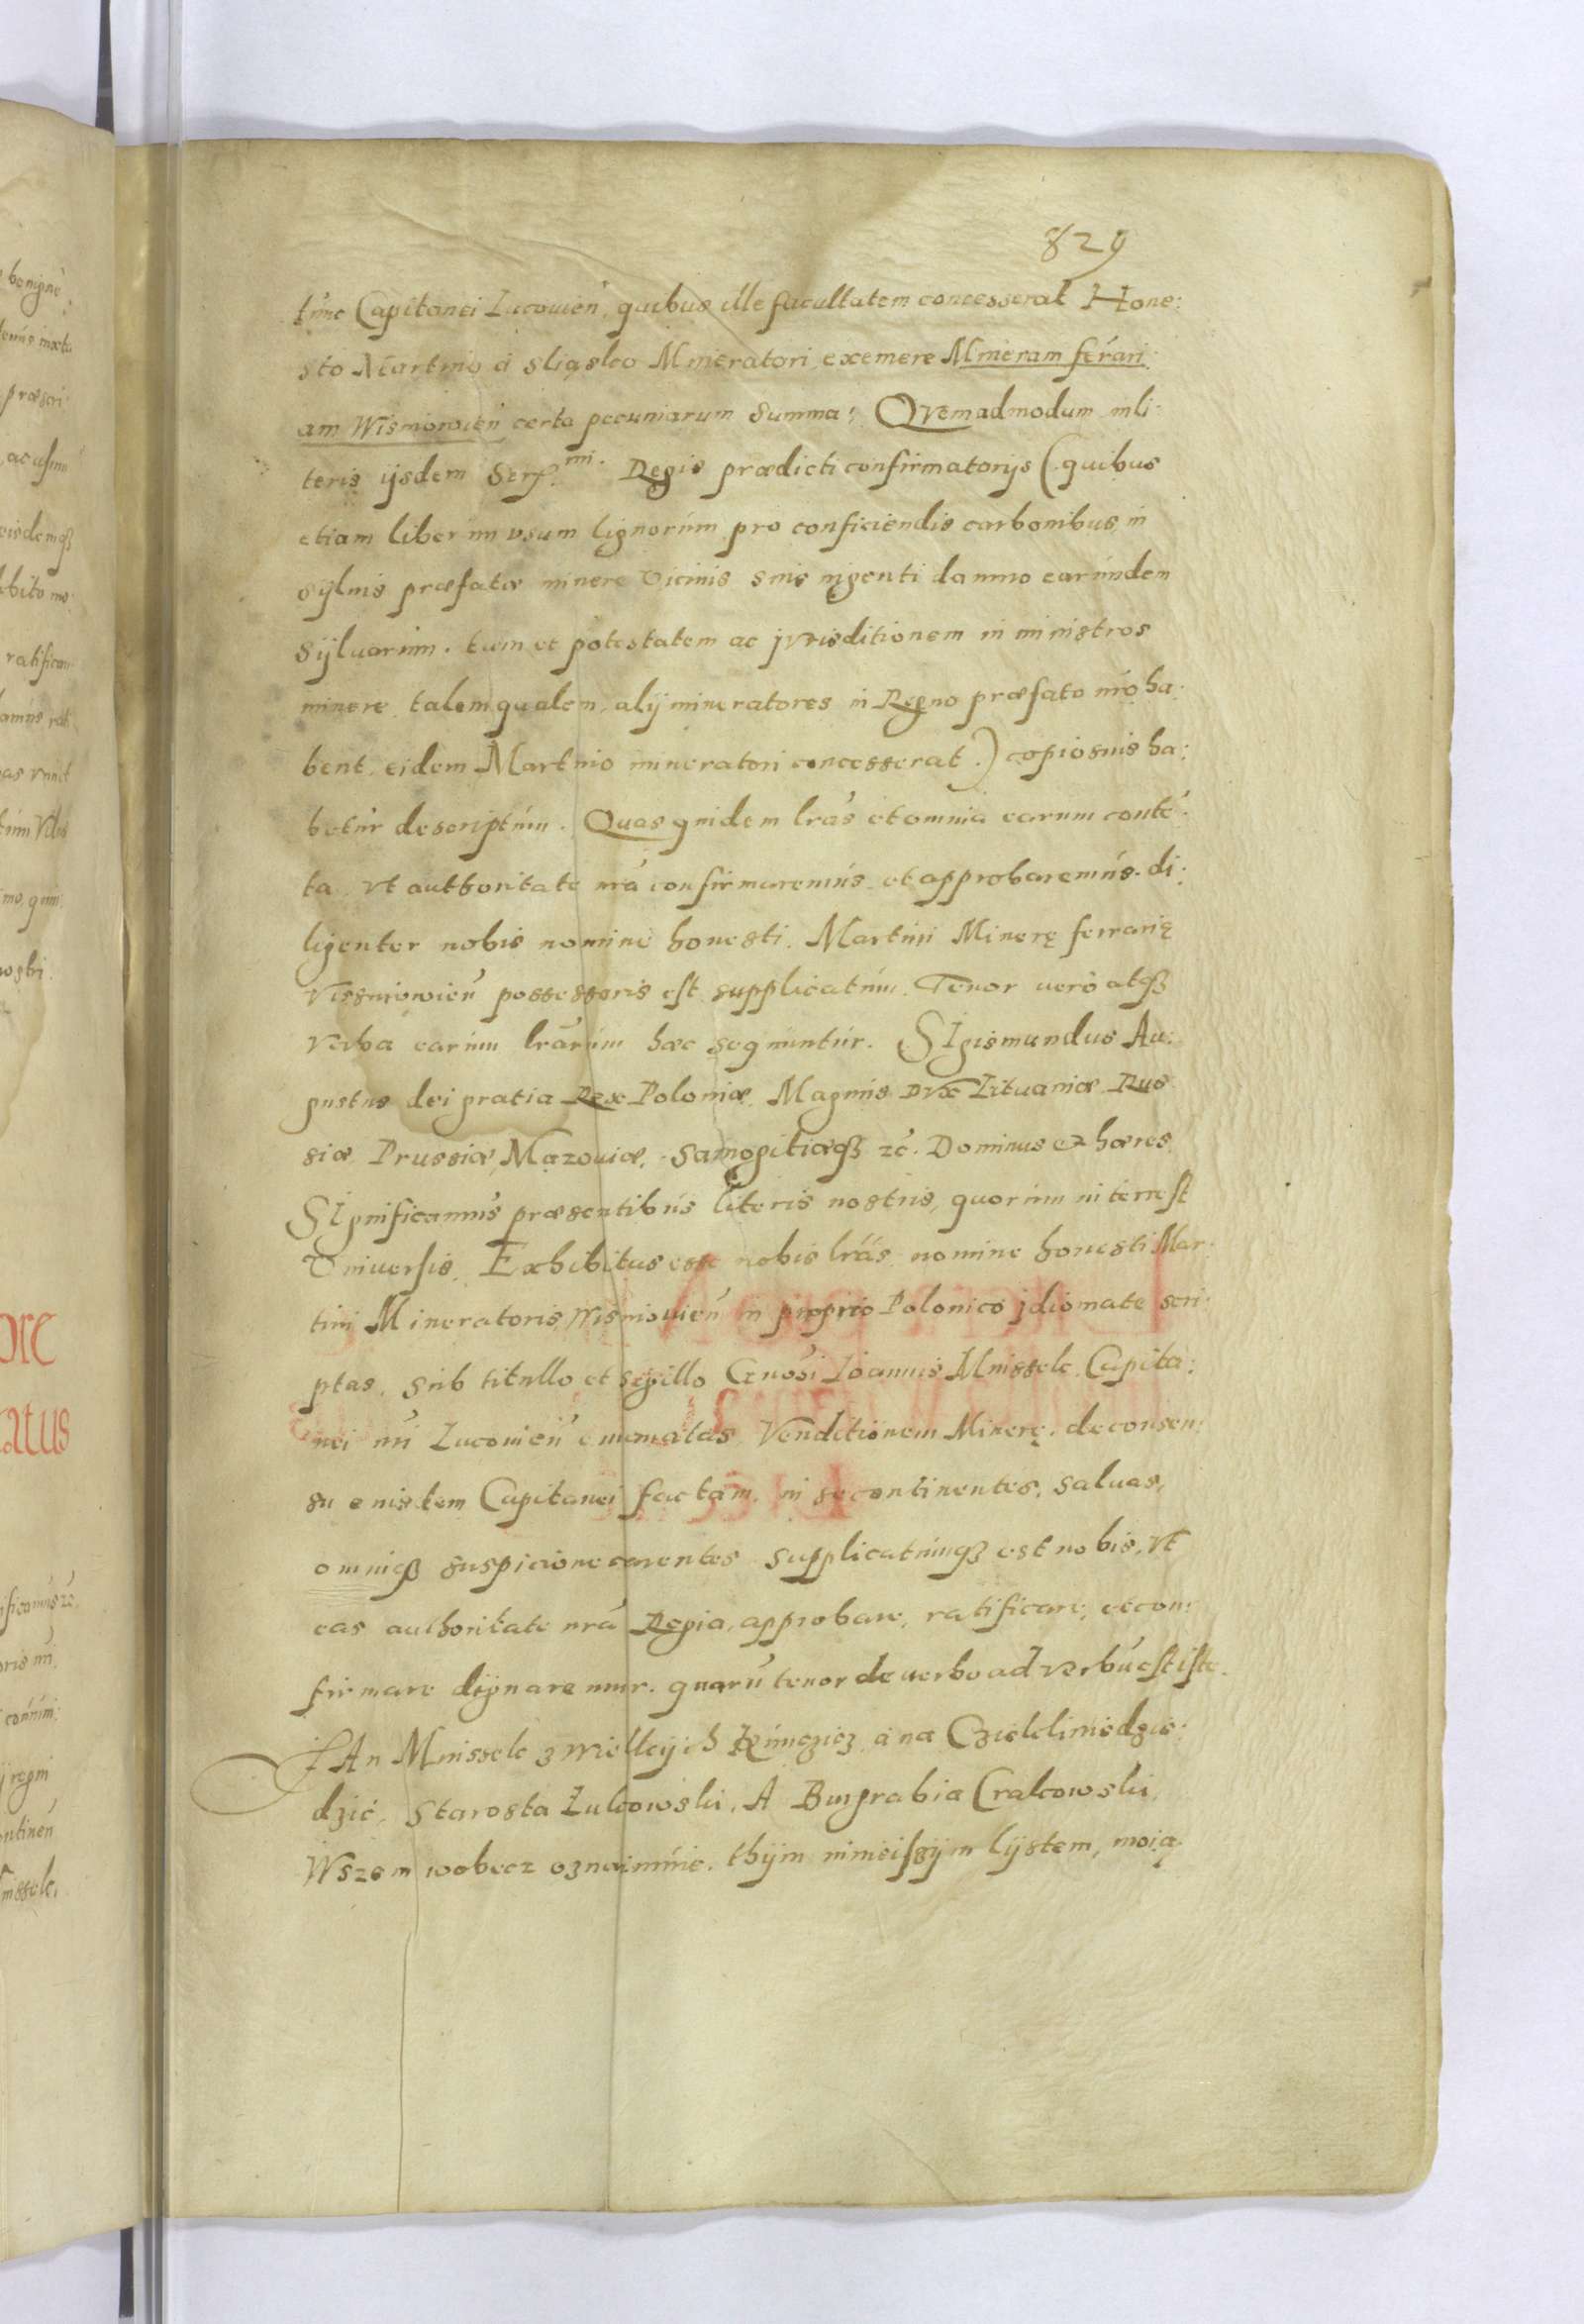 829
tunc Capitanei Lucouien̄, quibus ille facultatem concesserat Hone:
sto Martino á sliąsko Mineratori, exemere Mineram ferari:
am Wisniowien̄ certa pecuniarum summa; QVemadmodum in li:
teris ijsdem Ser.mi. Regis prædicti confirmatorijs (quibus
etiam liberum vsum lignorum pro conficiendis carbonibus, in
syluis præfatæ minere Vicinis sine ingenti damno earundem
syluarum. tum et potestatem ac jvrisditionem in ministros
minere, talem qualem, alij mineratores in Regno præfato nr̄o ha:
bent, eidem Martino mineratori concesserat.) copiosius ha:
betur descriptum. Quas quidem lr̄as et omnia earum contē
ta, vt authoritate nrā confirmaremus, et approbaremus. di:
ligenter nobis nomine honesti. Martini Minerę ferrarię
Vissniowien̄ possessoris est supplicatum. Tenor verò atqȝ
verba earum lrārum hæc sequuntur. SIgismundus Au:
gustus dei gratia Rex Poloniæ, Magnus DVx Lituaniæ Rus
siæ, Prussiæ, Mazouiæ, Samogitiæqȝ zc̄. Dominus et hæres.
SIgnificamus præsentibus literis nostris, quorum interrest
Vniuersis, Exhibitus esse nobis lrās, nomine honesti Mar:
tini Mineratoris Wisniouien̄ in proprio Polonico jdiomate scri:
ptas, sub titullo et sigillo Gn̄osi Ioannis Mnissek Capita:
nei nri Lucouien̄ emanatas Venditionem Minerę. de consen:
su eiusdem Capitanei factam, in se continentes, saluas,
omniqȝ suspicione carentes supplicatumqȝ est nobis, vt
eas authoritate nrā Regia, approbare, ratificare, et con:
firmare dignaremur. quarū tenor de uerbo ad verbū est iste.
IAn Mnissek z wielkijch Kunczicz, a na Czieklinie dzie:
dzic, Starosta Łukowski, A Burgrabia Crakowski,
Wszem wobecz oznaimuie, thym nineiszym lystem, moią